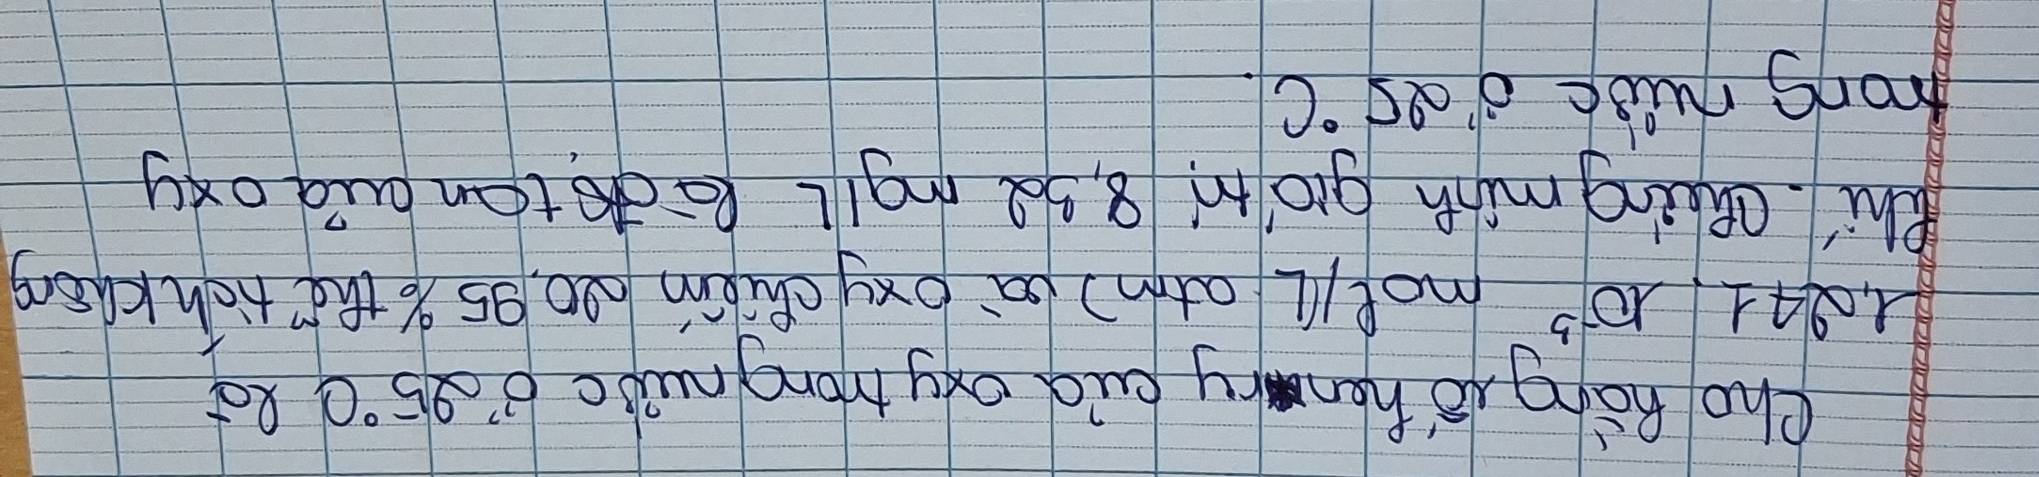 Cho hằng số henry của oxy trong nước ở 25°C là
1,241. 10⁻³ mol/(L atm) và oxy chiếm 20,95% thể tích không
khí. Chứng minh giá trị 8,32 mg/L là độ tan của oxy
trong nước ở 25°C.